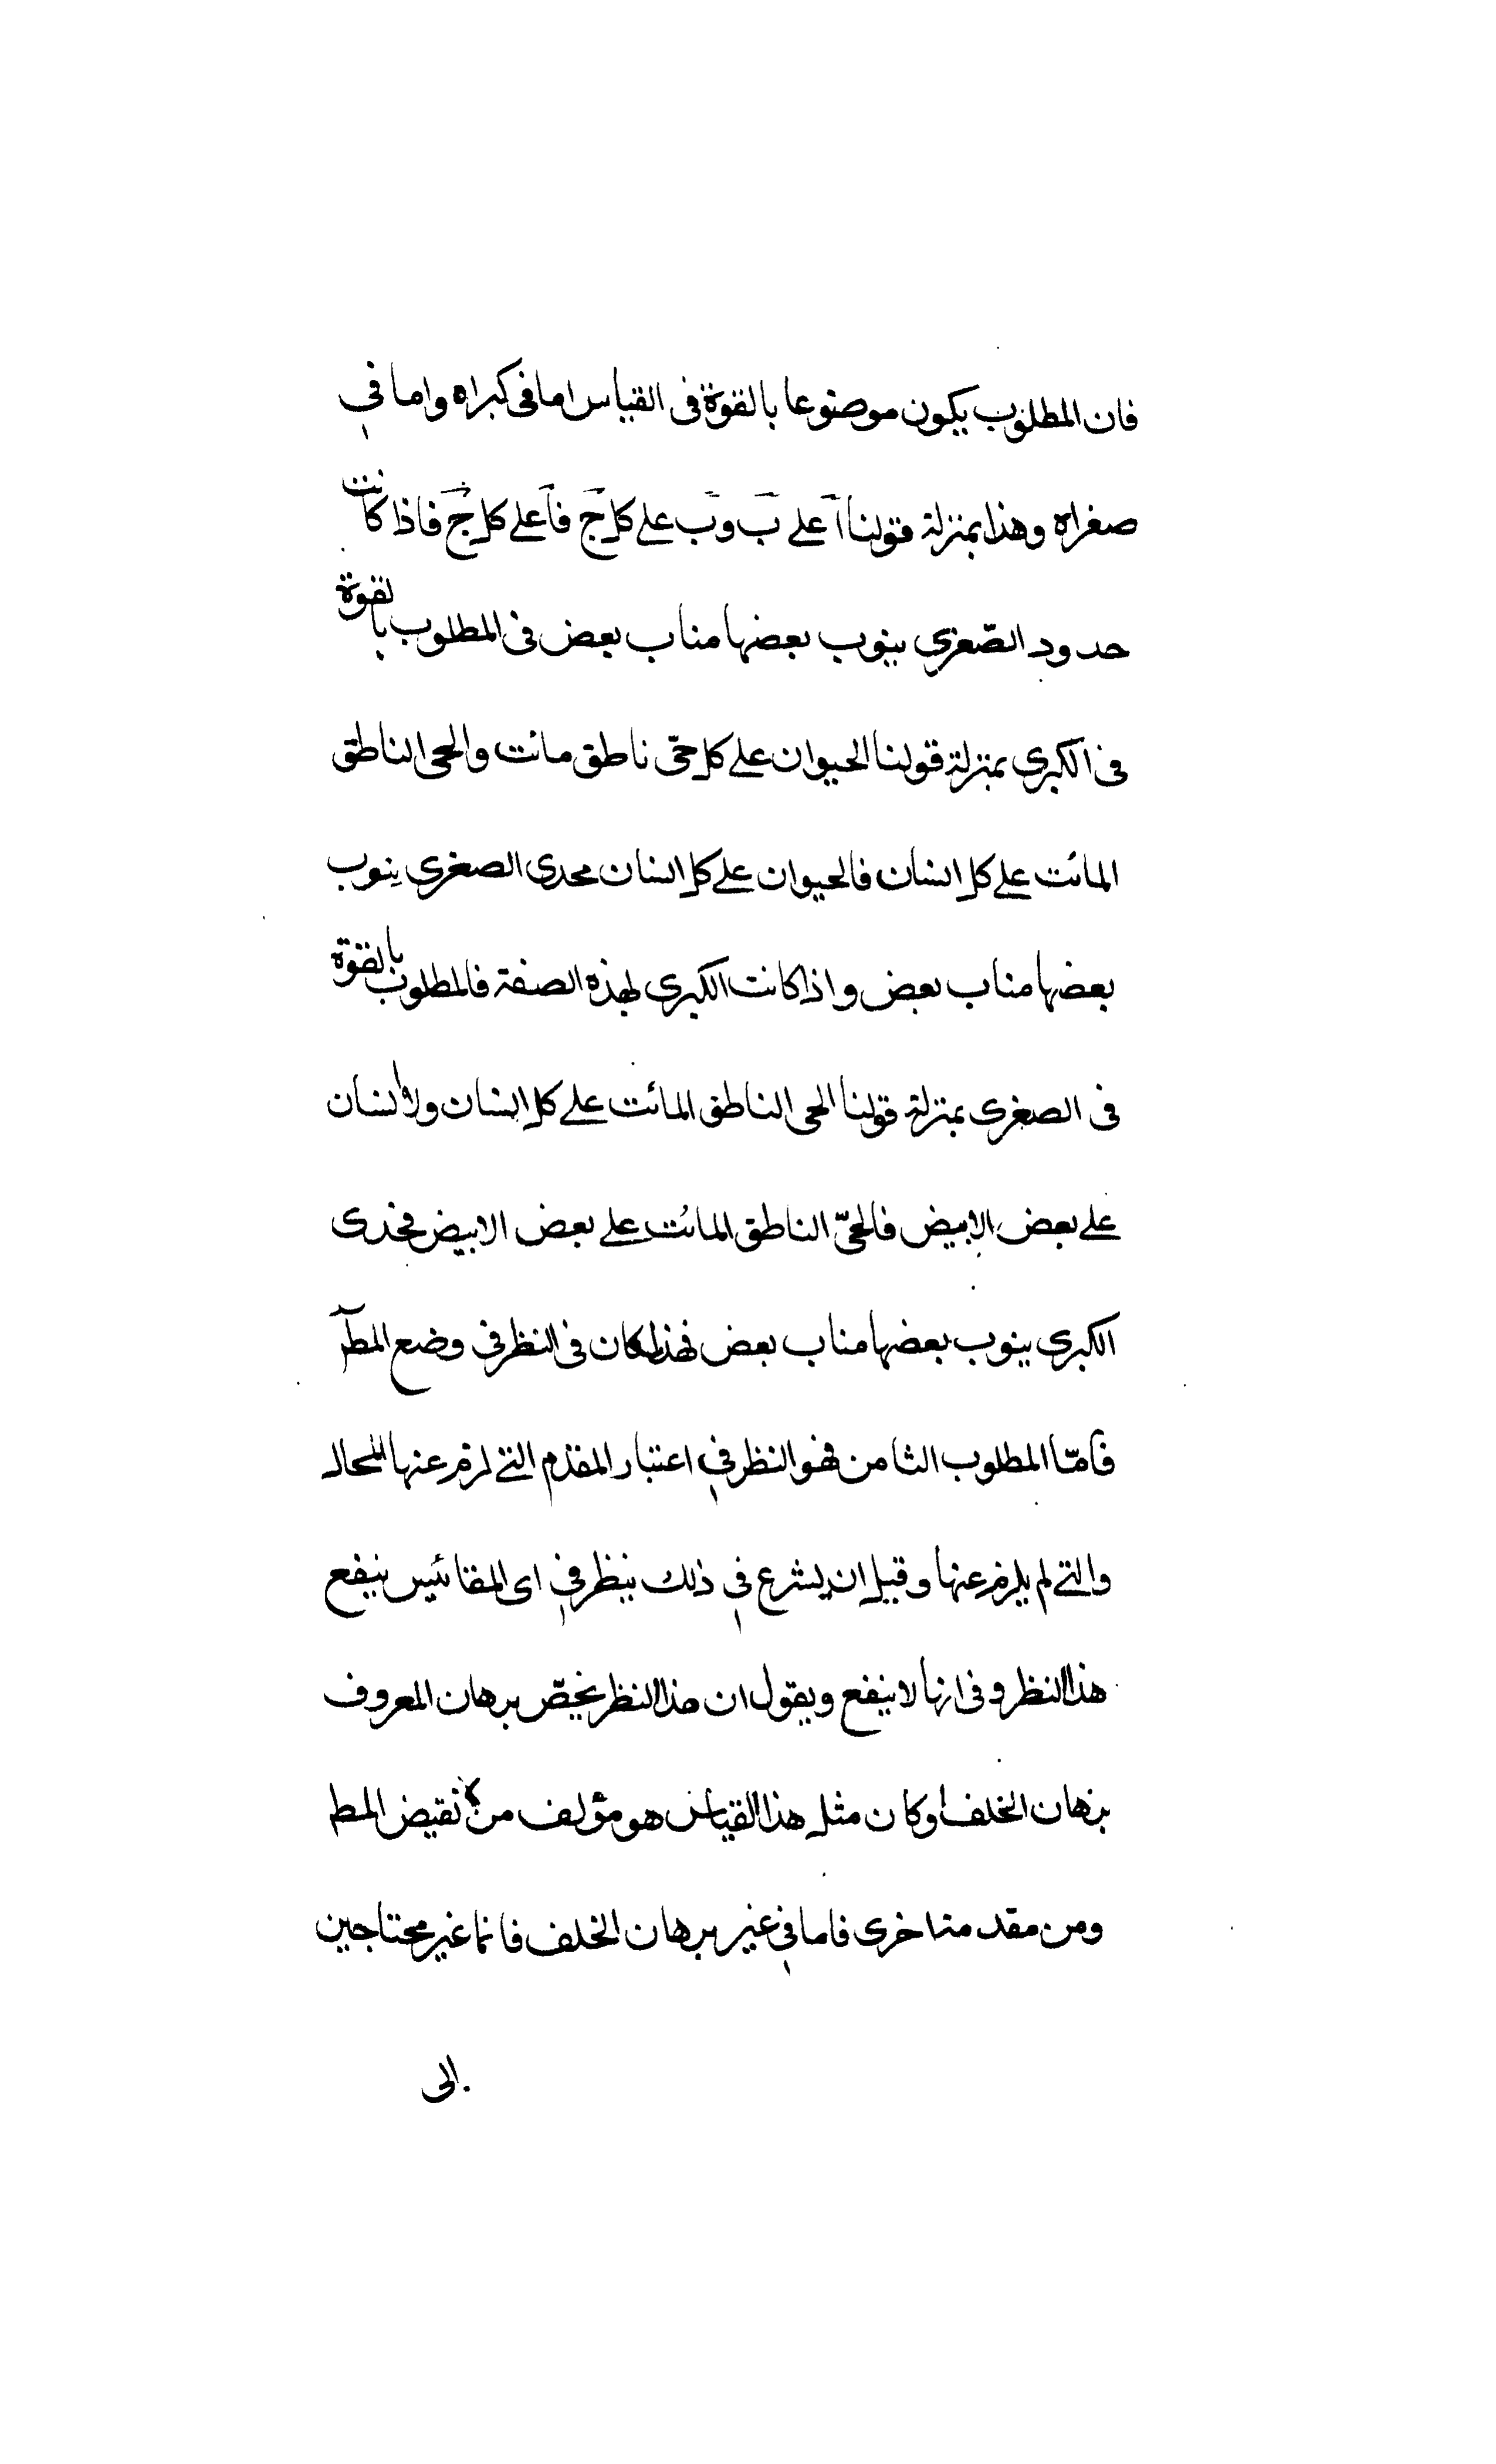 فان المطلوب يكون موضوعا بالقوة فى القياس اما فى كبراه واما في
صغراه وهذا بمنزلة قولنا آ على بَ وبَ على كل جَ فآ على كل جَ فاذا كانت
حدود الصّغرى ينوب بعضها مناب بعض فى المطلوب بالقوة
فى الكبرى بمنزلة قولنا الحيوان على كل حىّ ناطق مائت والحى الناطق
المائت على كل انسان فالحيوان على كل انسان فحدى الصغرى ينوب
بعضها مناب بعض واذا كانت الكبرى لهذه الصفة فالمطلوب بالقوة
فى الصغرى بمنزلة قولنا الحى الناطق المائت على كل انسان ولانسان
على بعض الابيض فالحىّ الناطق المائت على بعض الابيض فحدى
الكبرى ينوب بعضها مناب بعض فهذا كان فى النظر فى وضع المطـ
فامّا المطلوب الثامن فهو النظر في اعتبار المقدم التى لزم عنها المحال
والتى لم يلزم عنها وقبل ان يشرع في ذلك ينظر في اى المقائيس ينفع
هذا النظر وفى ازنها لا ينفع ويقول ان هذا النظر يخصّ برهان المعروف
برهان الخلف اوكان مثل هذا القياس هو مؤلف من نقيض المط
ومن مقدمة اخرى فاما في غير برهان الخلف فانما غير محتاجين
الى